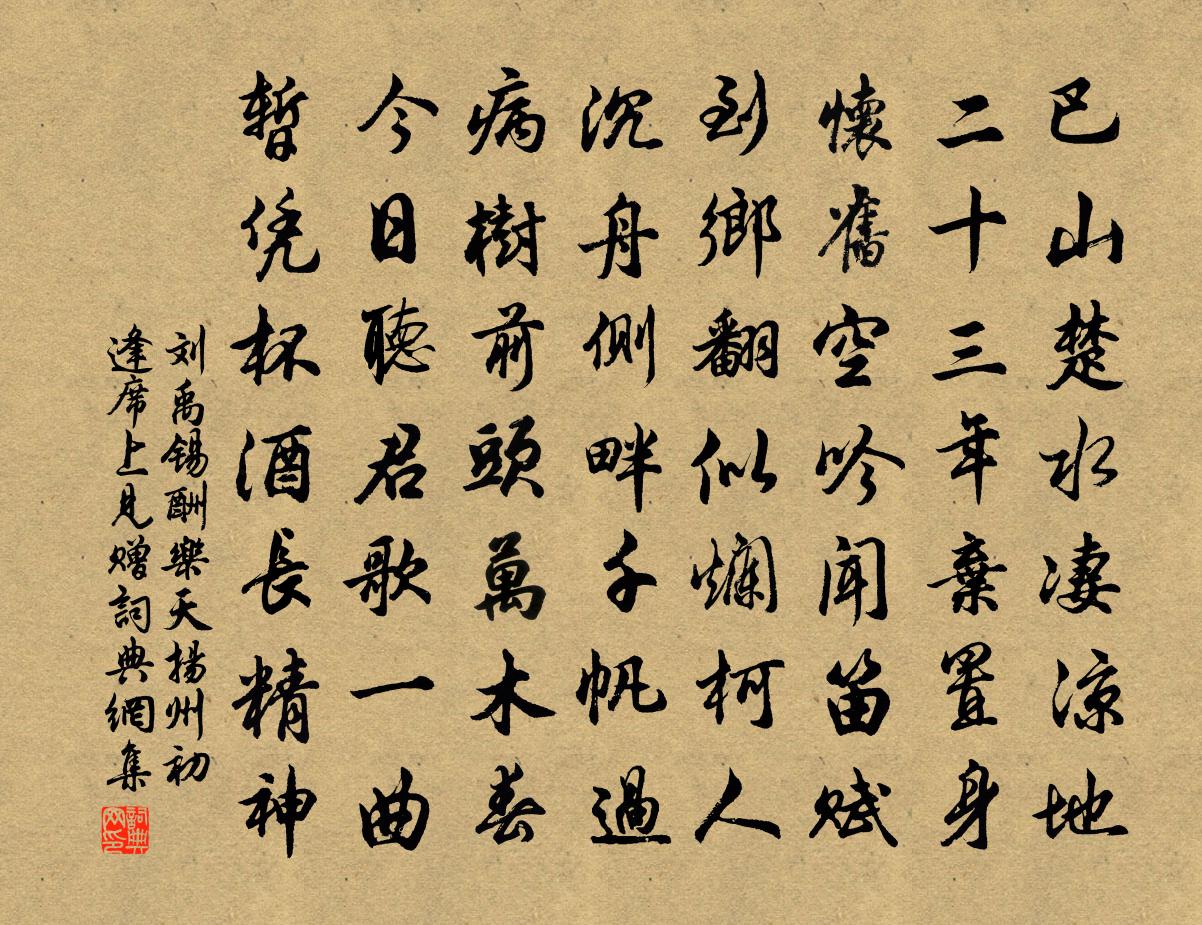 巴山楚水凄凉地
二十三年棄置身
懷舊空吟闻笛赋
到鄉翻似爛柯人
沉舟侧畔千帆過
病樹前頭萬木春
今日聽君歌一曲
暫凭杯酒長精神
刘禹锡酬樂天揚州初
逢席上見赠詞典網集
詞典网印